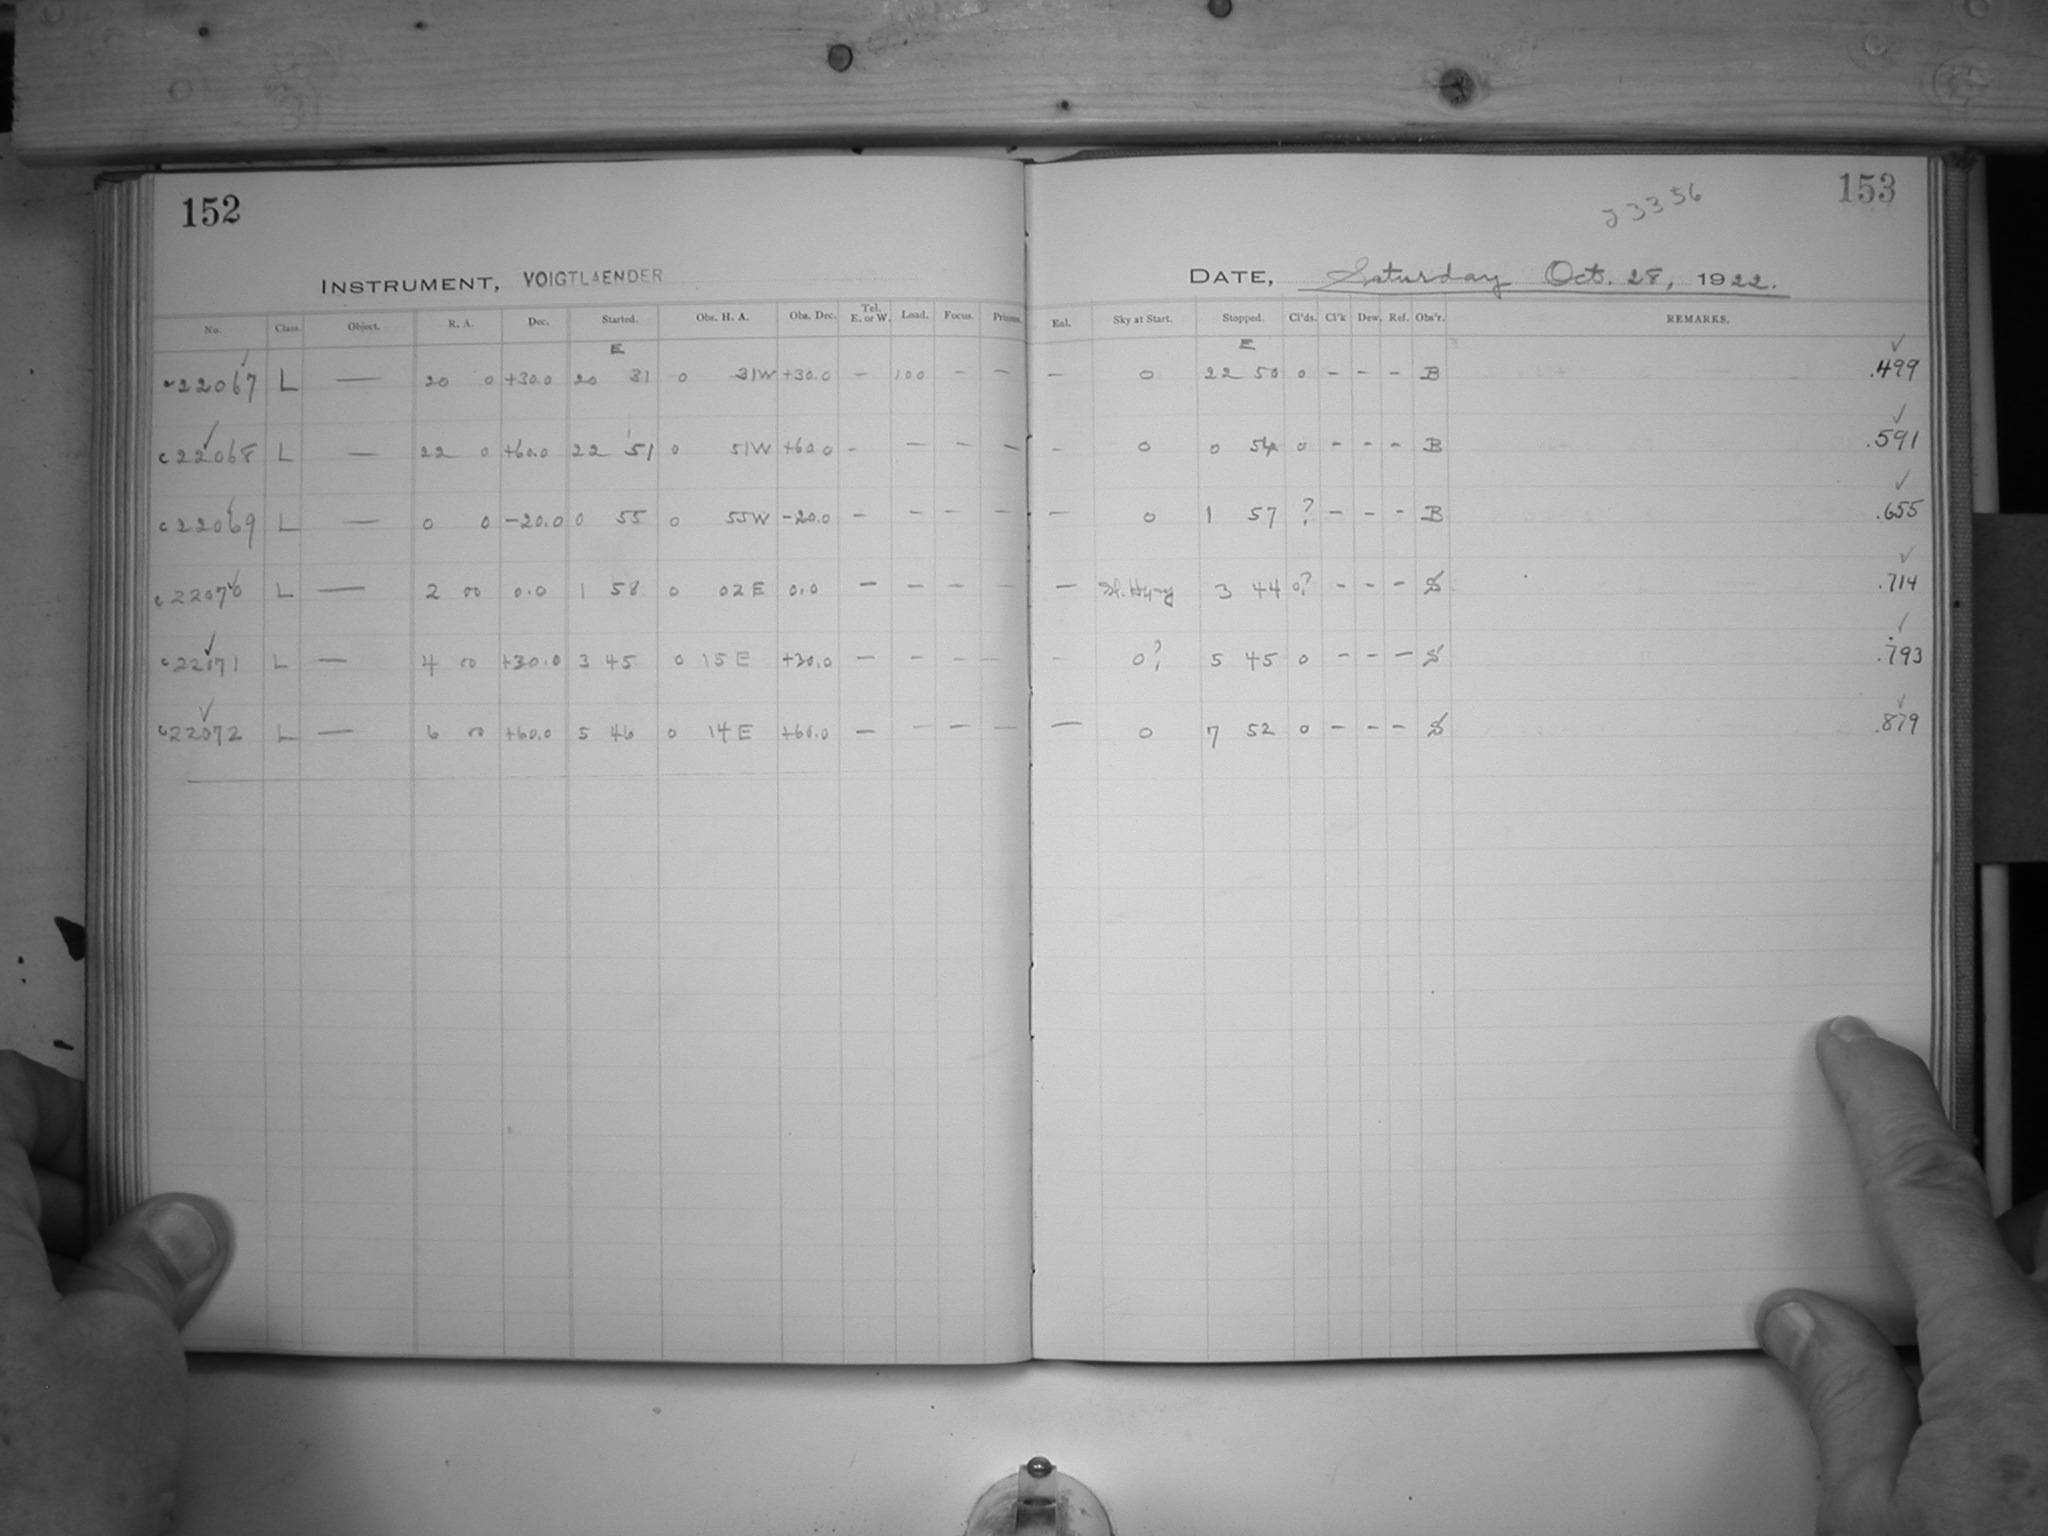 152
153
23356
INSTRUMENT, VOIGTLAENDER
DATE, Saturday Oct. 28, 1922.
No. Class. Object. R. A. Dec. Started. Obs. H. A. Obs. Dec. Tel. E. or W. Load. Focus. Prisms. Enl. Sky at Start. Stopped. Cl'ds. Cl'k Dew. Ref. Obs'r. REMARKS.
E E
c22067 L — 20 0 +30.0 20 31 0 31W +30.0 — 100 — — — 0 22 50 0 - - - B .499
c22068 L — 22 0 +60.0 22 51 0 51W +60.0 - — — — - 0 0 54 0 - - - B .591
c22069 L — 0 0 -20.0 0 55 0 55W -20.0 — — — — — 0 1 57 ? - - - B .655
c22070 L — 2 00 0.0 1 58 0 02E 0.0 — — — — — Sl. Hazy 3 44 0? - - - S .714
c22071 L — 4 00 +30.0 3 45 0 15E +30.0 — — — — — 0? 5 45 0 - - - S .793
c22072 L — 6 00 +60.0 5 46 0 14E +60.0 — — — — — 0 7 52 0 - - - S .879